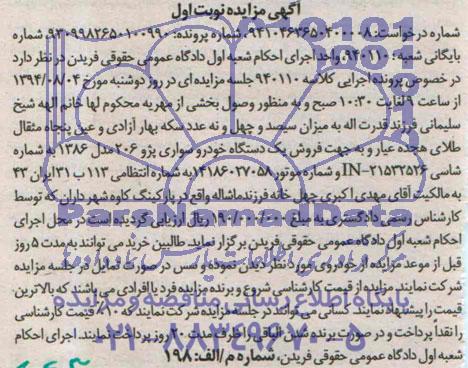 آگهی مزایده نوبت اول
شماره درخواست: ۹۴۱۰۴۶۳۶۵۰۴۰۰۰۰۸ شماره پرونده: ۹۳۰۹۹۸۲۶۵۰۱۰۰۹۹۰ شماره
بایگانی شعبه: ۹۴۰۱۱۰ واحد اجرای احکام شعبه اول دادگاه عمومی حقوقی فریدن در نظر دارد
در خصوص پرونده اجرایی کلاسه ۹۴۰۱۱۰ جلسه مزایده ای در روز دوشنبه مورخ ۱۳۹۴/۰۸/۰۴
از ساعت ۹ لغایت ۱۰:۳۰ صبح و به منظور وصول بخشی از مهریه محکوم لها خانم الهه شیخ
سلیمانی فرزند قدرت اله به میزان سیصد و چهل و نه عدد سکه بهار آزادی و عین پنجاه مثقال
طلای هجده عیار و به جهت فروش یک دستگاه خودرو سواری پژو ۲۰۶ مدل ۱۳۸۶ به شماره
شاسی IN-۲۱۵۳۲۵۲۶ و شماره موتور ۱۴۱۸۶۰۲۷۰۵۸ به شماره انتظامی ۱۱۳ ب ۳۱ ایران ۴۳
به مالکیت آقای مهدی اکبری چهل خانه فرزند ماشاله واقع در پارکینگ کاوه شهر داران که توسط
کارشناس رسمی دادگستری به مبلغ ریال ارزیابی گردیده است در محل اجرای
احکام شعبه اول دادگاه عمومی حقوقی فریدن برگزار نماید طالبین خرید می توانند به مدت ۵ روز
قبل از موعد مزایده از خودروی مورد نظر دیدن نموده و سپس در صورت تمایل در جلسه مزایده
شرکت نمایند مزایده از قیمت کارشناسی شروع و برنده مزایده فرد یا افرادی می باشند که بالاترین
قیمت را پیشنهاد نمایند. کسانی می توانند در جلسه مزایده شرکت نمایند که ۱۰٪ قیمت کارشناسی
را نقداً پرداخت و در صورت برنده شدن الباقی را ظرف مدت ۲۰ روز پرداخت نمایند. اجرای احکام
شعبه اول دادگاه عمومی حقوقی فریدن، شماره م/الف: ۱۹۸
ParsNamadData
پایگاه اطلاع رسانی مناقصه و مزایده
۰۲۱-۸۸۳۴۹۶۷۰-۵